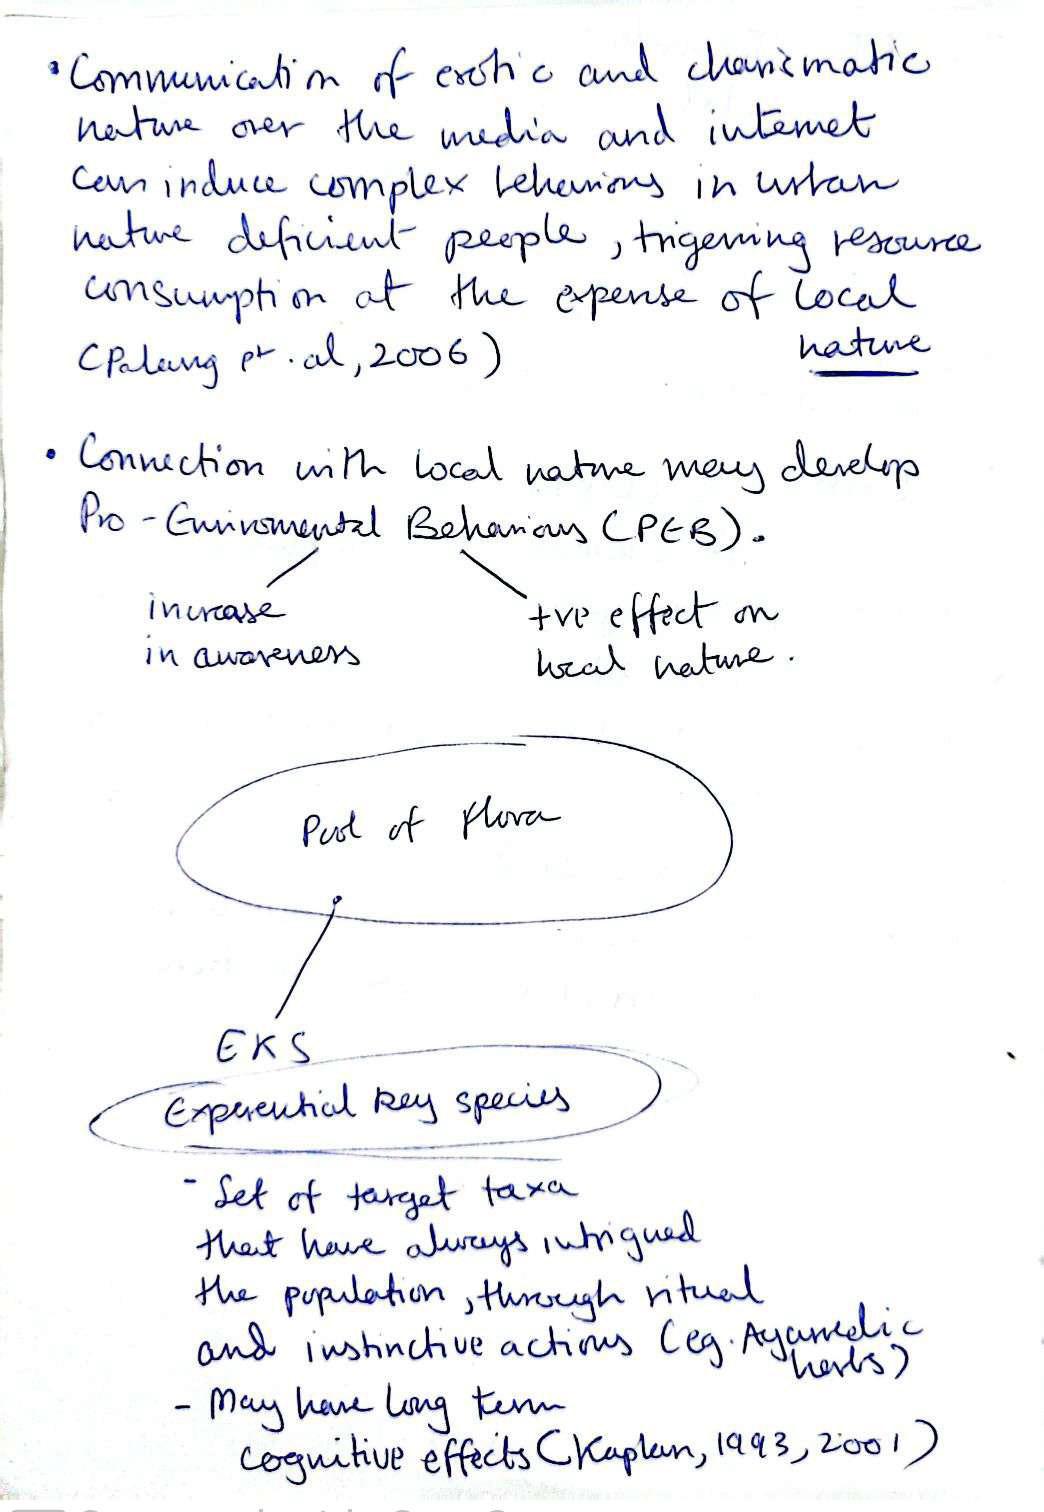 • Communication of exotic and charismatic
nature over the media and internet
can induce complex behaviours in urban
nature deficient people, trigerring resource
consumption at the expense of local
nature
(Palang et. al, 2006)
• Connection with local nature may develop
Pro - Enviromental Behaviours (PEB).
increase
in awareness
+ve effect on
local nature.
Pool of flora
EKS
Experential key species
- Set of target taxa
that have always intrigued
the population, through ritual
and instinctive actions (eg. Ayurvedic
herbs)
- May have long term
cognitive effects (Kaplan, 1993, 2001)